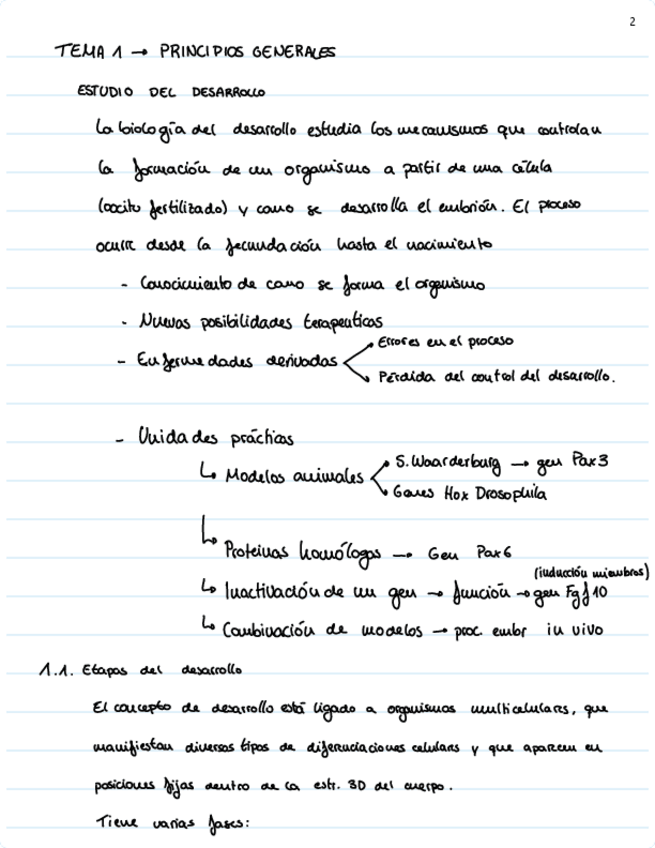 2
TEMA 1 → PRINCIPIOS GENERALES
ESTUDIO DEL DESARROLLO
La biología del desarrollo estudia los mecanismos que controlan
la formación de un organismo a partir de una célula
(oocito fertilizado) y como se desarrolla el embrión. El proceso
ocurre desde la fecundación hasta el nacimiento
- Conocimiento de como se forma el organismo
- Nuevas posibilidades terapeuticas
- Enfermedades derivadas
Errores en el proceso
Pérdida del control del desarrollo.
- Unidades prácticas
↳ Modelos animales
S. Waarderburg → gen Pax3
Genes Hox Drosophila
↳ Proteinas homólogas → Gen Pax6
(inducción miembros)
↳ Inactivación de un gen → función → gen Fgf10
↳ Combinación de modelos → proc. embr in vivo
1.1. Etapas del desarrollo
El concepto de desarrollo está ligado a organismos multicelulares, que
manifiestan diversos tipos de diferenciaciones celulares y que aparecen en
posiciones fijas dentro de la estr. 3D del cuerpo.
Tiene varias fases: